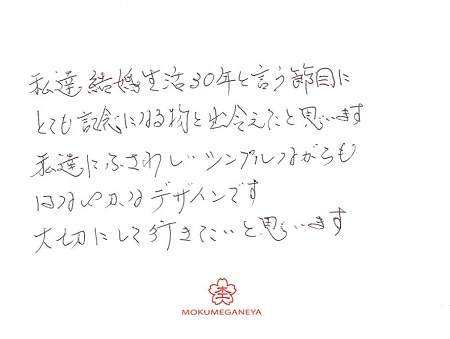 私達 結婚生活30年と言う節目に
とても記念になる物と出会えたと思います
私達にふさわしいシンプルながらも
はなやかなデザインです
大切にして行きたいと思います
杢
MOKUMEGANEYA